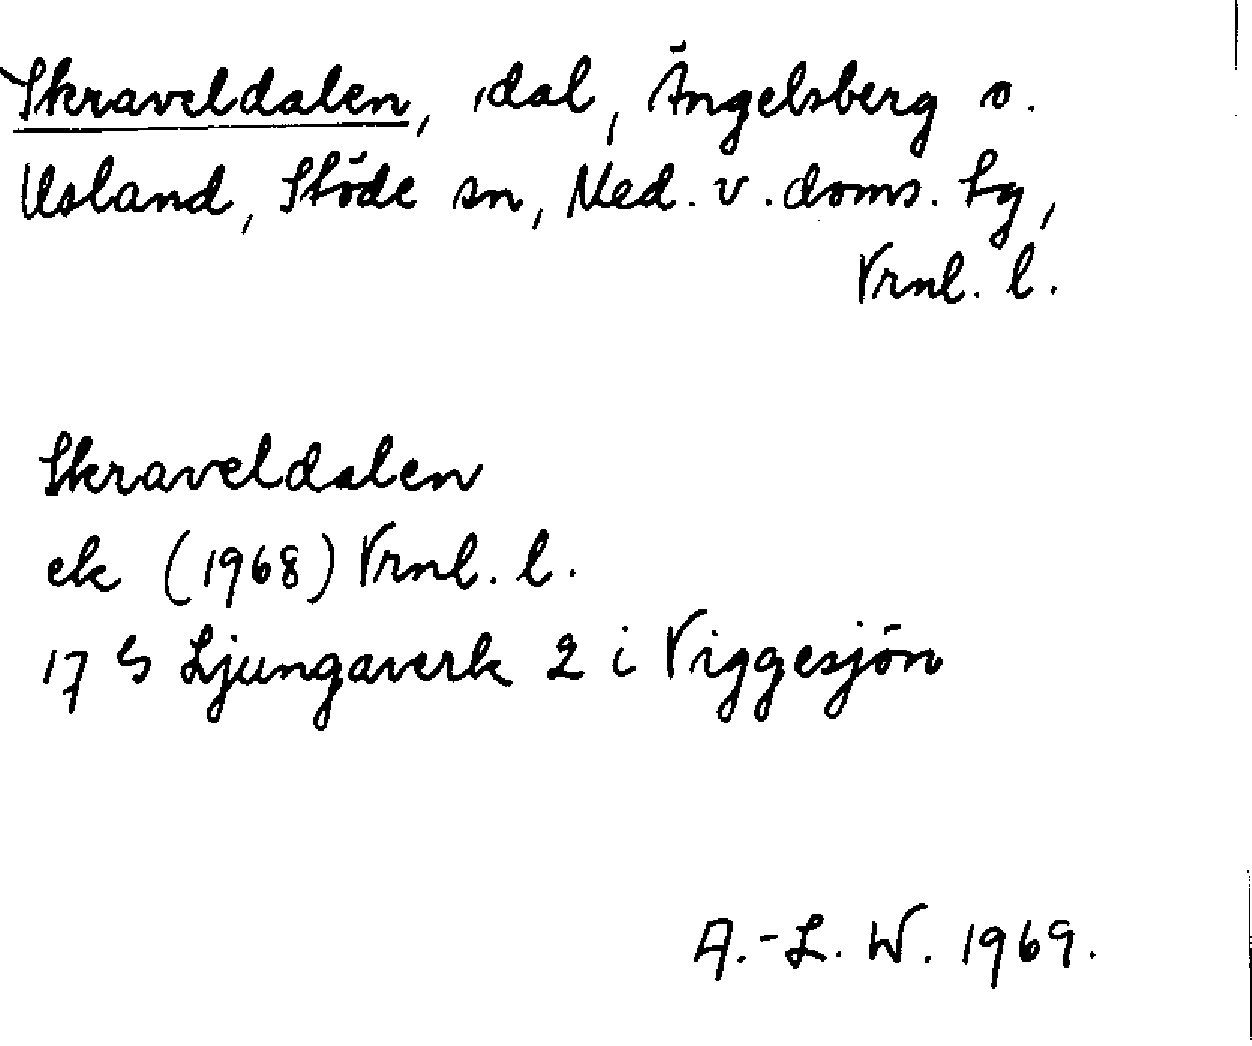 Skraveldalen, dal, Ängelsberg o.
Usland, Stöde sn, Med. v. doms. tg,
Vrnl. l.
Skraveldalen
ek (1968) Vrnl. l.
17 G Ljungaverk 2 i Viggesjön
A.-L. W. 1969.